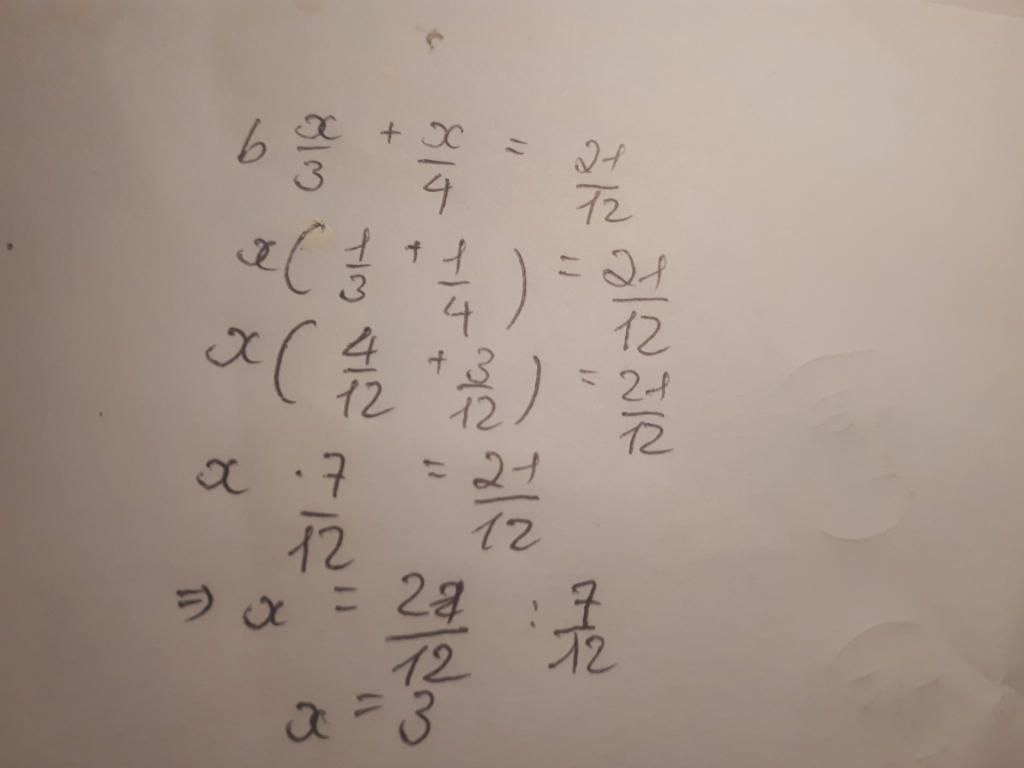 b x/3 + x/4 = 21/12
x( 1/3 + 1/4 ) = 21/12
x( 4/12 + 3/12 ) = 21/12
x · 7/12 = 21/12
⇒ x = 21/12 : 7/12
x = 3